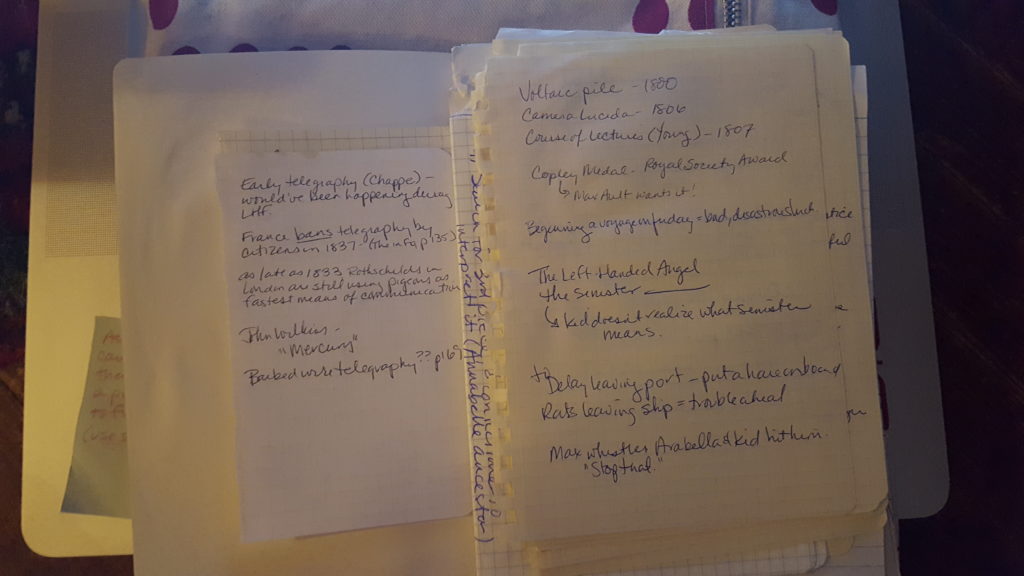 Early telegraphy (Chappe) –
would've been happening during
LHA.
France bans telegraphy by
citizens in 1837 – (The info, p135)
as late as 1833 Rothschilds in
London are still using pigeons as
fastest means of communication
John Wilkins –
"Mercury"
Barbed wire telegraphy?? p169
interpret it (Annabelle ancestor)
Voltaic pile – 1800
Camera Lucida – 1806
Course of Lectures (Young) – 1807
Copley Medal – Royal Society Award
↳ Max Ault wants it!
Beginning a voyage on friday = bad, disastrous luck.
The Left Handed Angel
the Senister
↳ kid doesn't realize what senister
means.
to Delay leaving port – put a hare on board
Rats leaving ship = trouble ahead
Max whistles Arabella & kid hit him.
"Stop that."